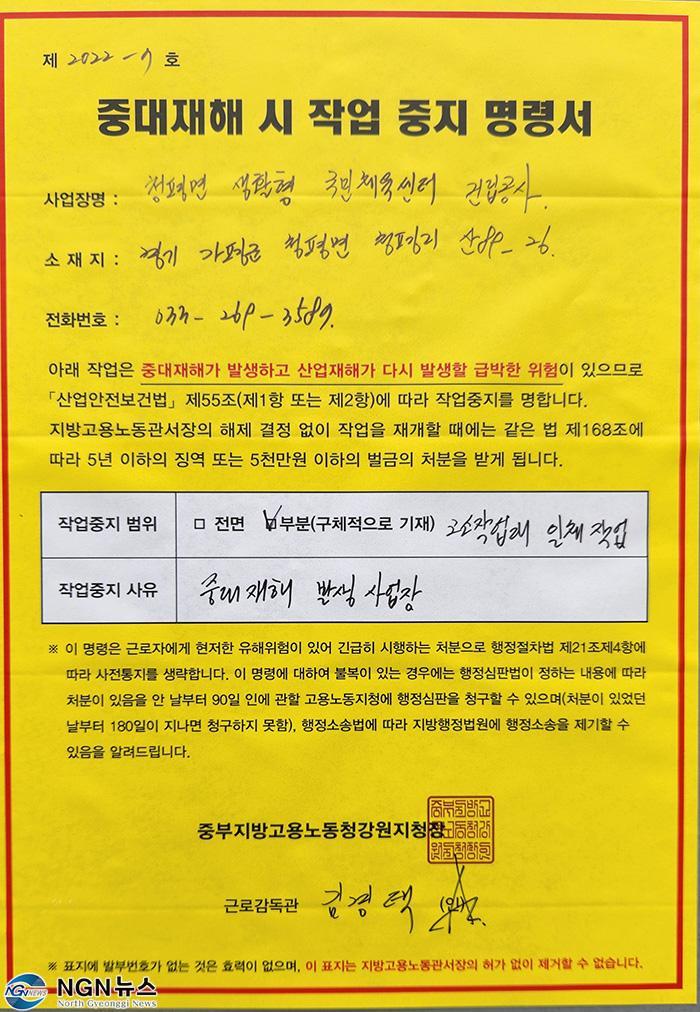 제 2022-9 호
중대재해 시 작업 중지 명령서
사업장명 : 청평면 생활형 국민체육센터 건립공사.
소 재 지 : 경기 가평군 청평면 청평리 산89-26.
전화번호 : 033-269-3589.
아래 작업은 중대재해가 발생하고 산업재해가 다시 발생할 급박한 위험이 있으므로
「산업안전보건법」 제55조(제1항 또는 제2항)에 따라 작업중지를 명합니다.
지방고용노동관서장의 해제 결정 없이 작업을 재개할 때에는 같은 법 제168조에
따라 5년 이하의 징역 또는 5천만원 이하의 벌금의 처분을 받게 됩니다.
작업중지 범위 □ 전면 ☑부분(구체적으로 기재) 고소작업대 일체 작업
작업중지 사유 중대재해 발생 사업장
※ 이 명령은 근로자에게 현저한 유해위험이 있어 긴급히 시행하는 처분으로 행정절차법 제21조제4항에
따라 사전통지를 생략합니다. 이 명령에 대하여 불복이 있는 경우에는 행정심판법이 정하는 내용에 따라
처분이 있음을 안 날부터 90일 인에 관할 고용노동지청에 행정심판을 청구할 수 있으며(처분이 있었던
날부터 180일이 지나면 청구하지 못함), 행정소송법에 따라 지방행정법원에 행정소송을 제기할 수
있음을 알려드립니다.
중부지방고용노동청강원지청장
근로감독관 김경택 (인)
※ 표지에 발부번호가 없는 것은 효력이 없으며, 이 표지는 지방고용노동관서장의 허가 없이 제거할 수 없습니다.
NGN NEWS NGN뉴스
North Gyeonggi News